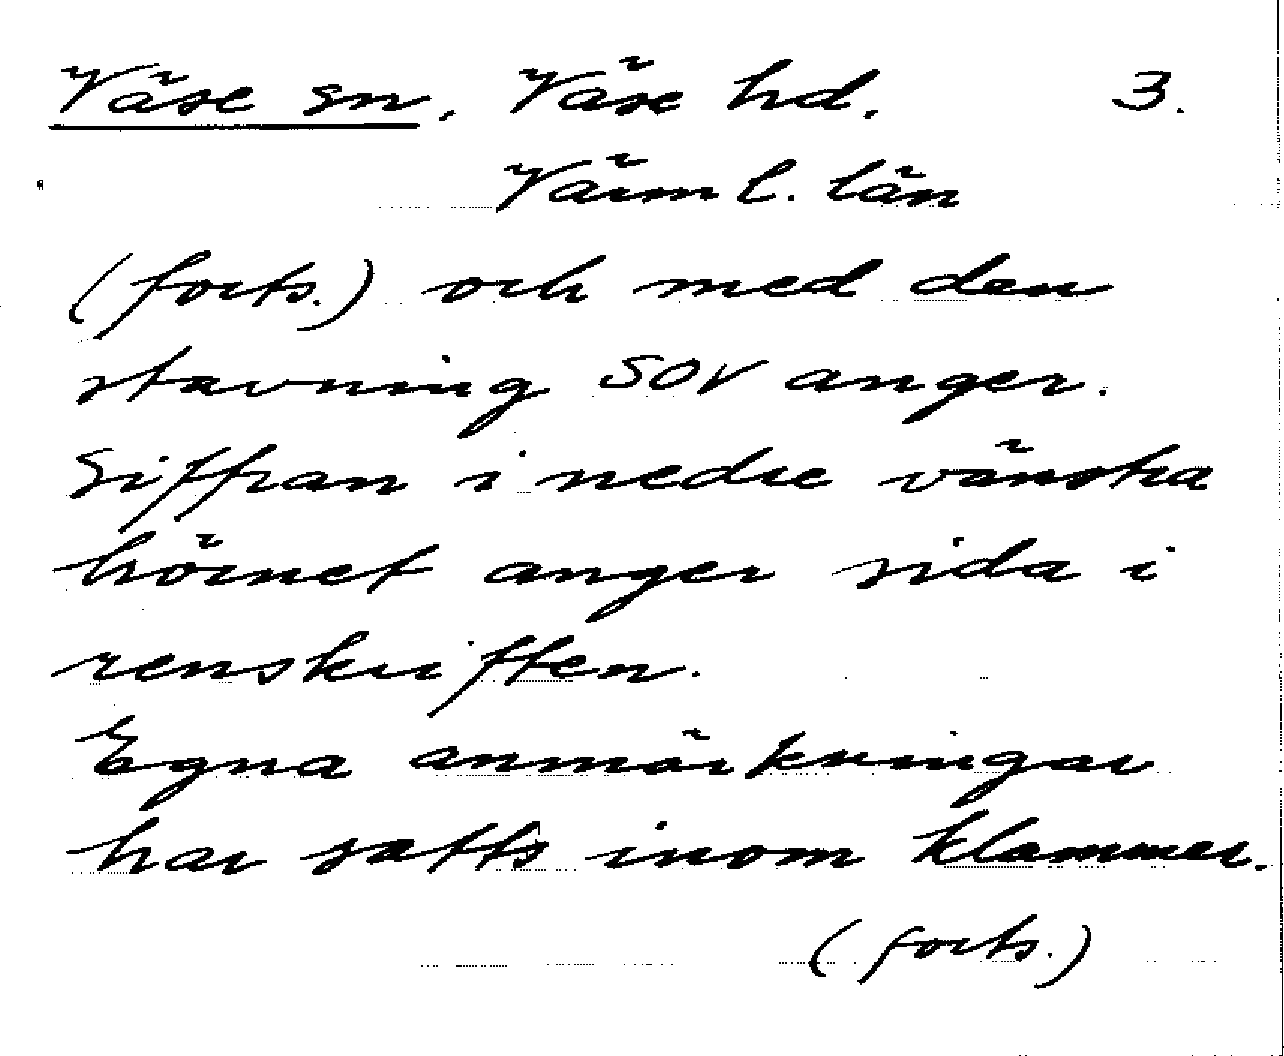 Väse sn, Väse hd. 3.
Värml. län
(forts.) och med den
stavning SOV anger.
Siffran i nedre vänstra
hörnet anger sida i
renskriften.
Egna anmärkningar
har satts inom klammer.
(forts.)